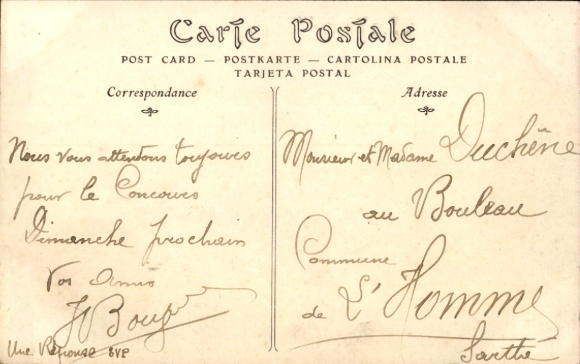 Carte Postale
POST CARD — POSTKARTE — CARTOLINA POSTALE
TARJETA POSTAL
Correspondance
Nous vous attendons toujours
pour le Concours
Dimanche prochain
Vos Amis
Une Réponse SVP
Adresse
Monsieur et Madame Duchêne
au Bouleau
Commune
de L'Homme
Sarthe